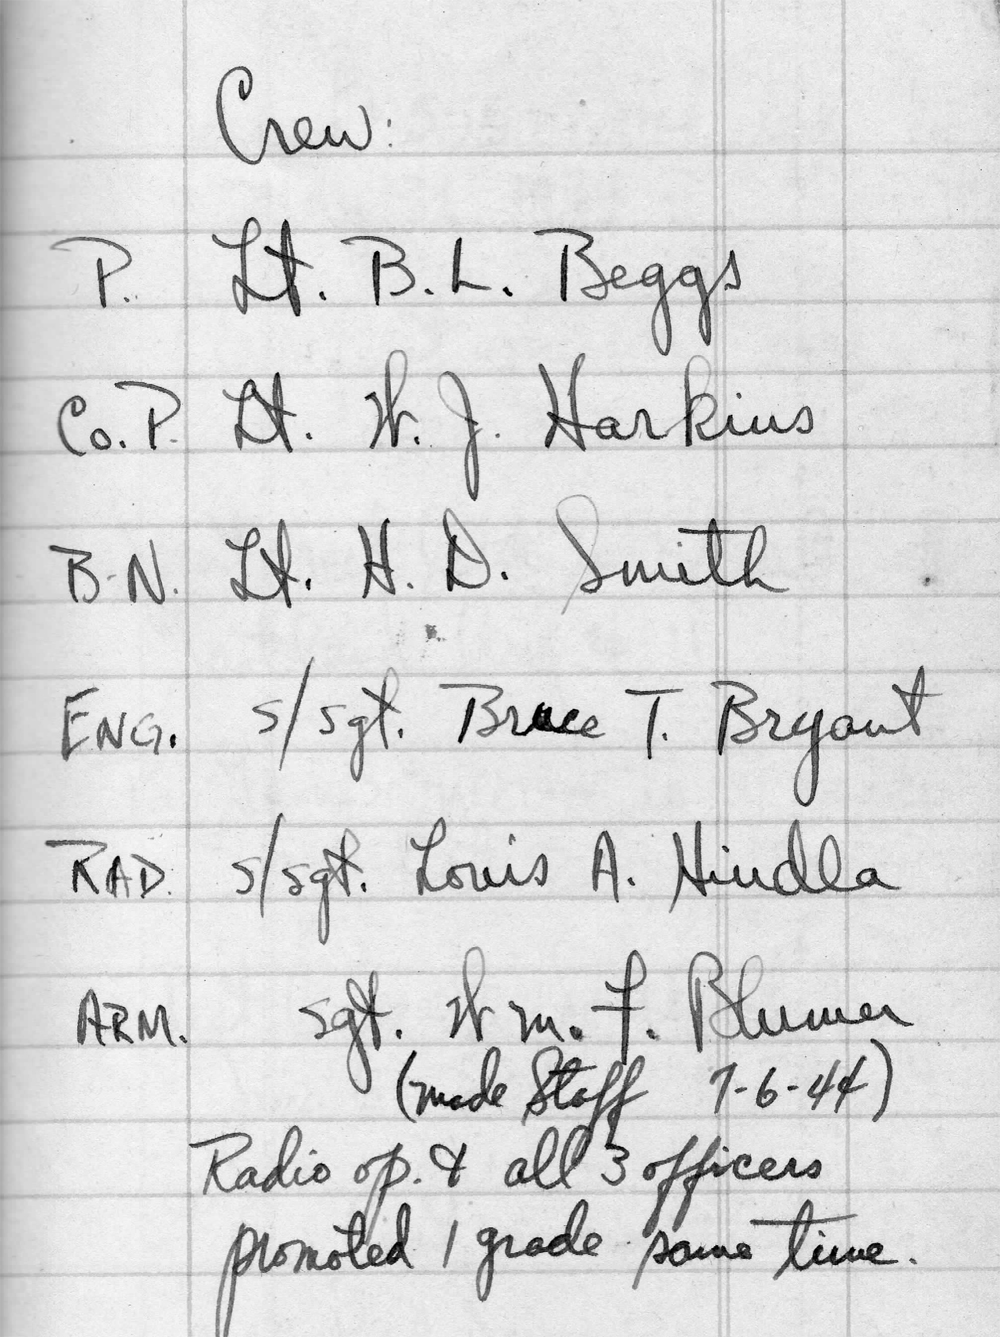 Crew:
P. Lt. B. L. Beggs
Co. P. Lt. W. J. Harkins
B-N. Lt. H. D. Smith
ENG. s/sgt. Bruce T. Bryant
RAD. s/sgt. Louis A. Hindla
ARM. sgt. Wm. F. Blumer
(made Staff 7-6-44)
Radio op. & all 3 officers
promoted 1 grade same time.